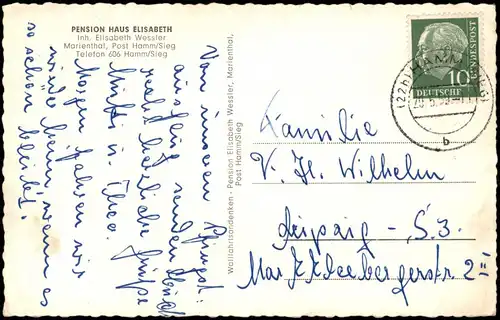 PENSION HAUS ELISABETH
Inh. Elisabeth Wessler
Marienthal, Post Hamm/Sieg
Telefon 606 Hamm/Sieg
Von unserem Pfingst-
ausflug senden Euch
recht herzliche Grüße
Morgen fahren wir
wieder heim, wenn es
so schön bleibt.
Wallfahrtsandenken - Pension Elisabeth Wessler, Marienthal,
Post Hamm/Sieg
DEUTSCHE BUNDESPOST
10
(22b) HAMM (SIEG)
b
Familie
V. H. Wilhelm
Leipzig - S.3.
Markkleebergerstr 2 II